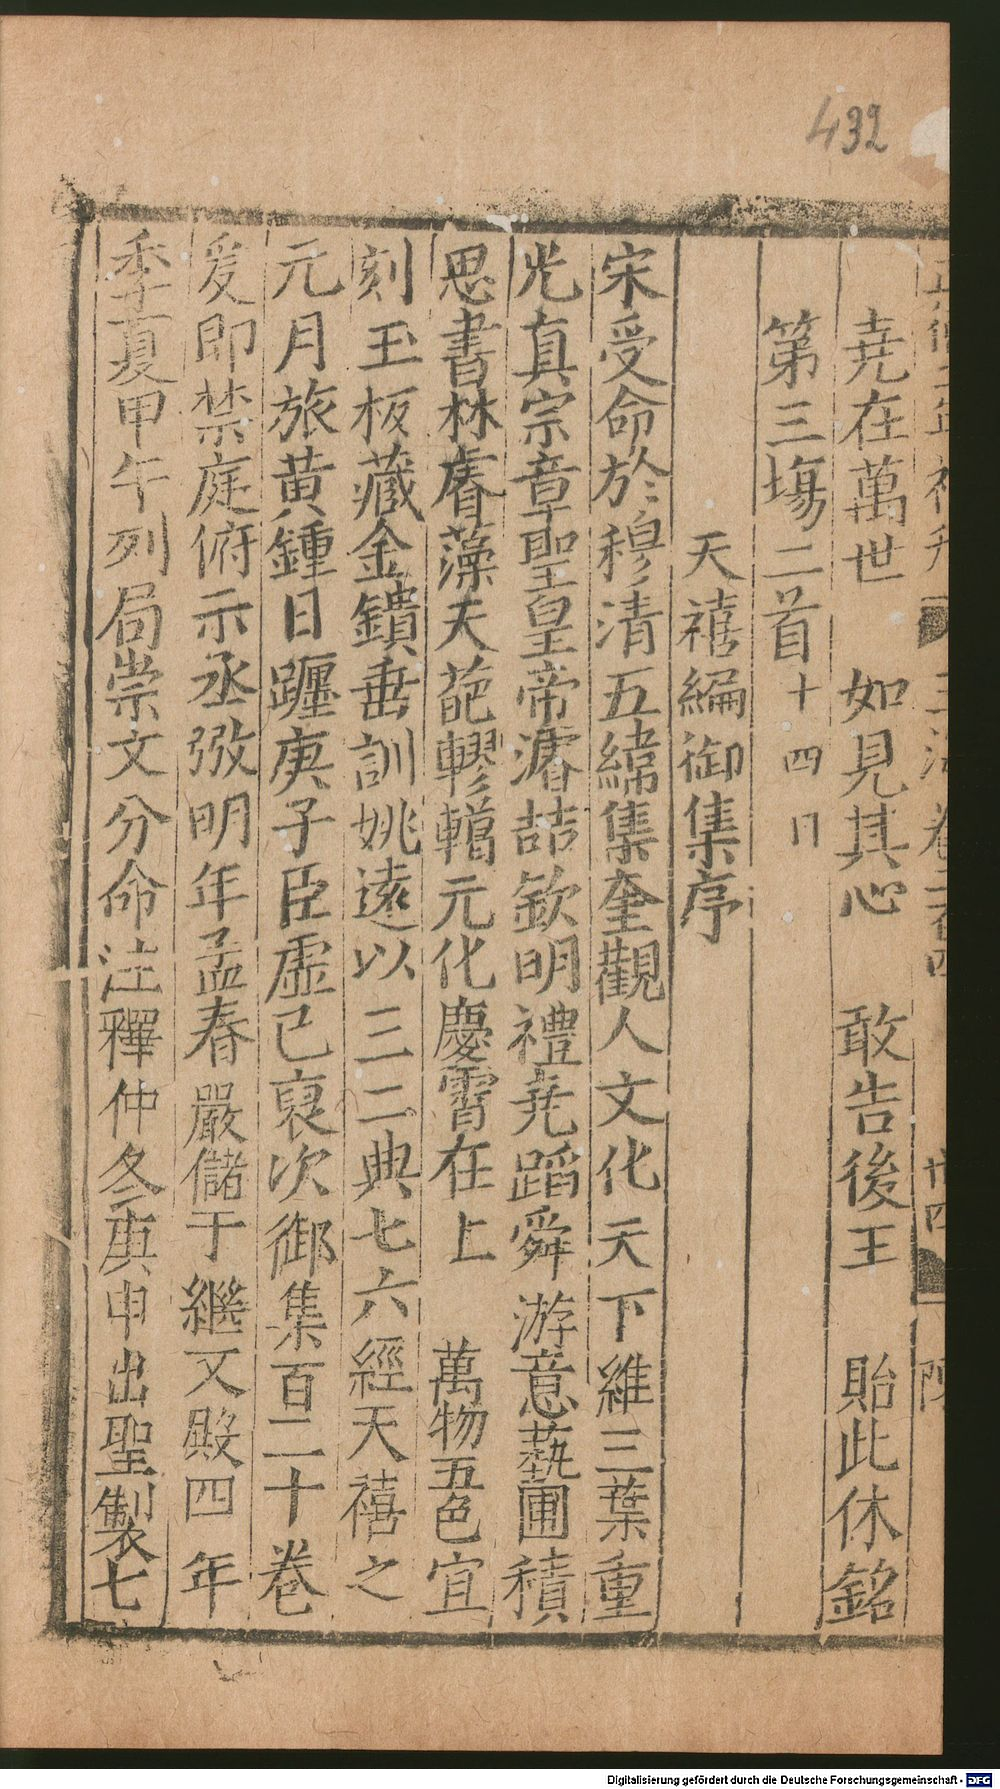 432
堯在萬世 如見其心 敢告後王 貽此休銘
第三場二首十四日
天禧編御集序
宋受命於穆清五緯集奎觀人文化天下維三葉重
光真宗章聖皇帝濬喆欽明禮堯蹈舜游意藝圃積
思書林睿藻天葩轇轕元化慶霄在上 萬物五色宜
刻玉板藏金鐀垂訓姚遠以三二典七六經天禧之
元月旅黃鍾日躔庚子臣虛己裒次御集百二十卷
爰即禁庭俯示丞弼明年孟春嚴儲于繼文殿四年
季夏甲午列局崇文分命注釋仲冬庚申出聖製七
Digitalisierung gefördert durch die Deutsche Forschungsgemeinschaft - DFG